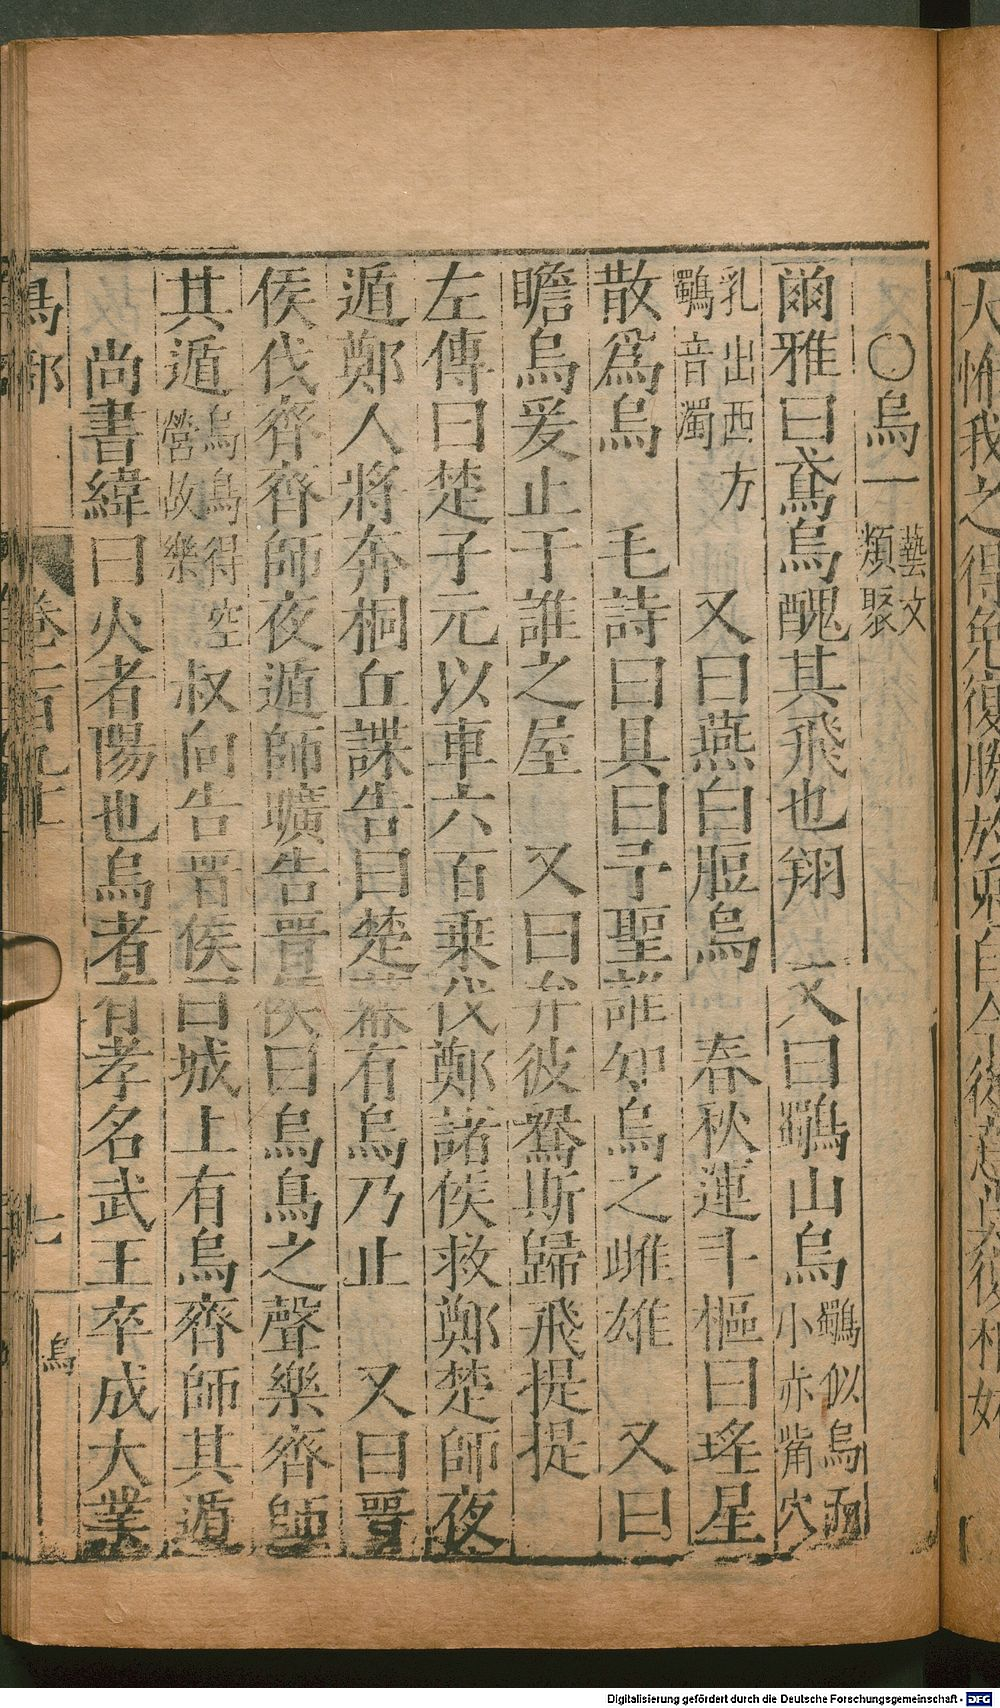 人惟我之得免復勝於卵自今
〇烏一 藝文類聚
爾雅曰鳶烏醜其飛也翔　又曰鸀山烏 鸀似烏而小赤觜穴
乳出西方鸀音濁　又曰燕白脰烏　春秋運斗樞曰瑤星
散爲烏　毛詩曰具曰予聖誰知烏之雌雄　又曰
瞻烏爰止于誰之屋　又曰弁彼鴛斯歸飛提提
左傳曰楚子元以車六百乘伐鄭諸侯救鄭楚師夜
遁鄭人將奔桐丘諜告曰楚幕有烏乃止　又曰晉
侯伐齊齊師夜遁師曠告晉侯曰烏鳥之聲樂齊師
其遁 烏鳥得空營故樂 叔向告晉侯曰城上有烏齊師其遁
尚書緯曰火者陽也烏者有孝名武王卒成大業
鳥部　卷一百九十　七　烏
Digitalisierung gefördert durch die Deutsche Forschungsgemeinschaft - DFG